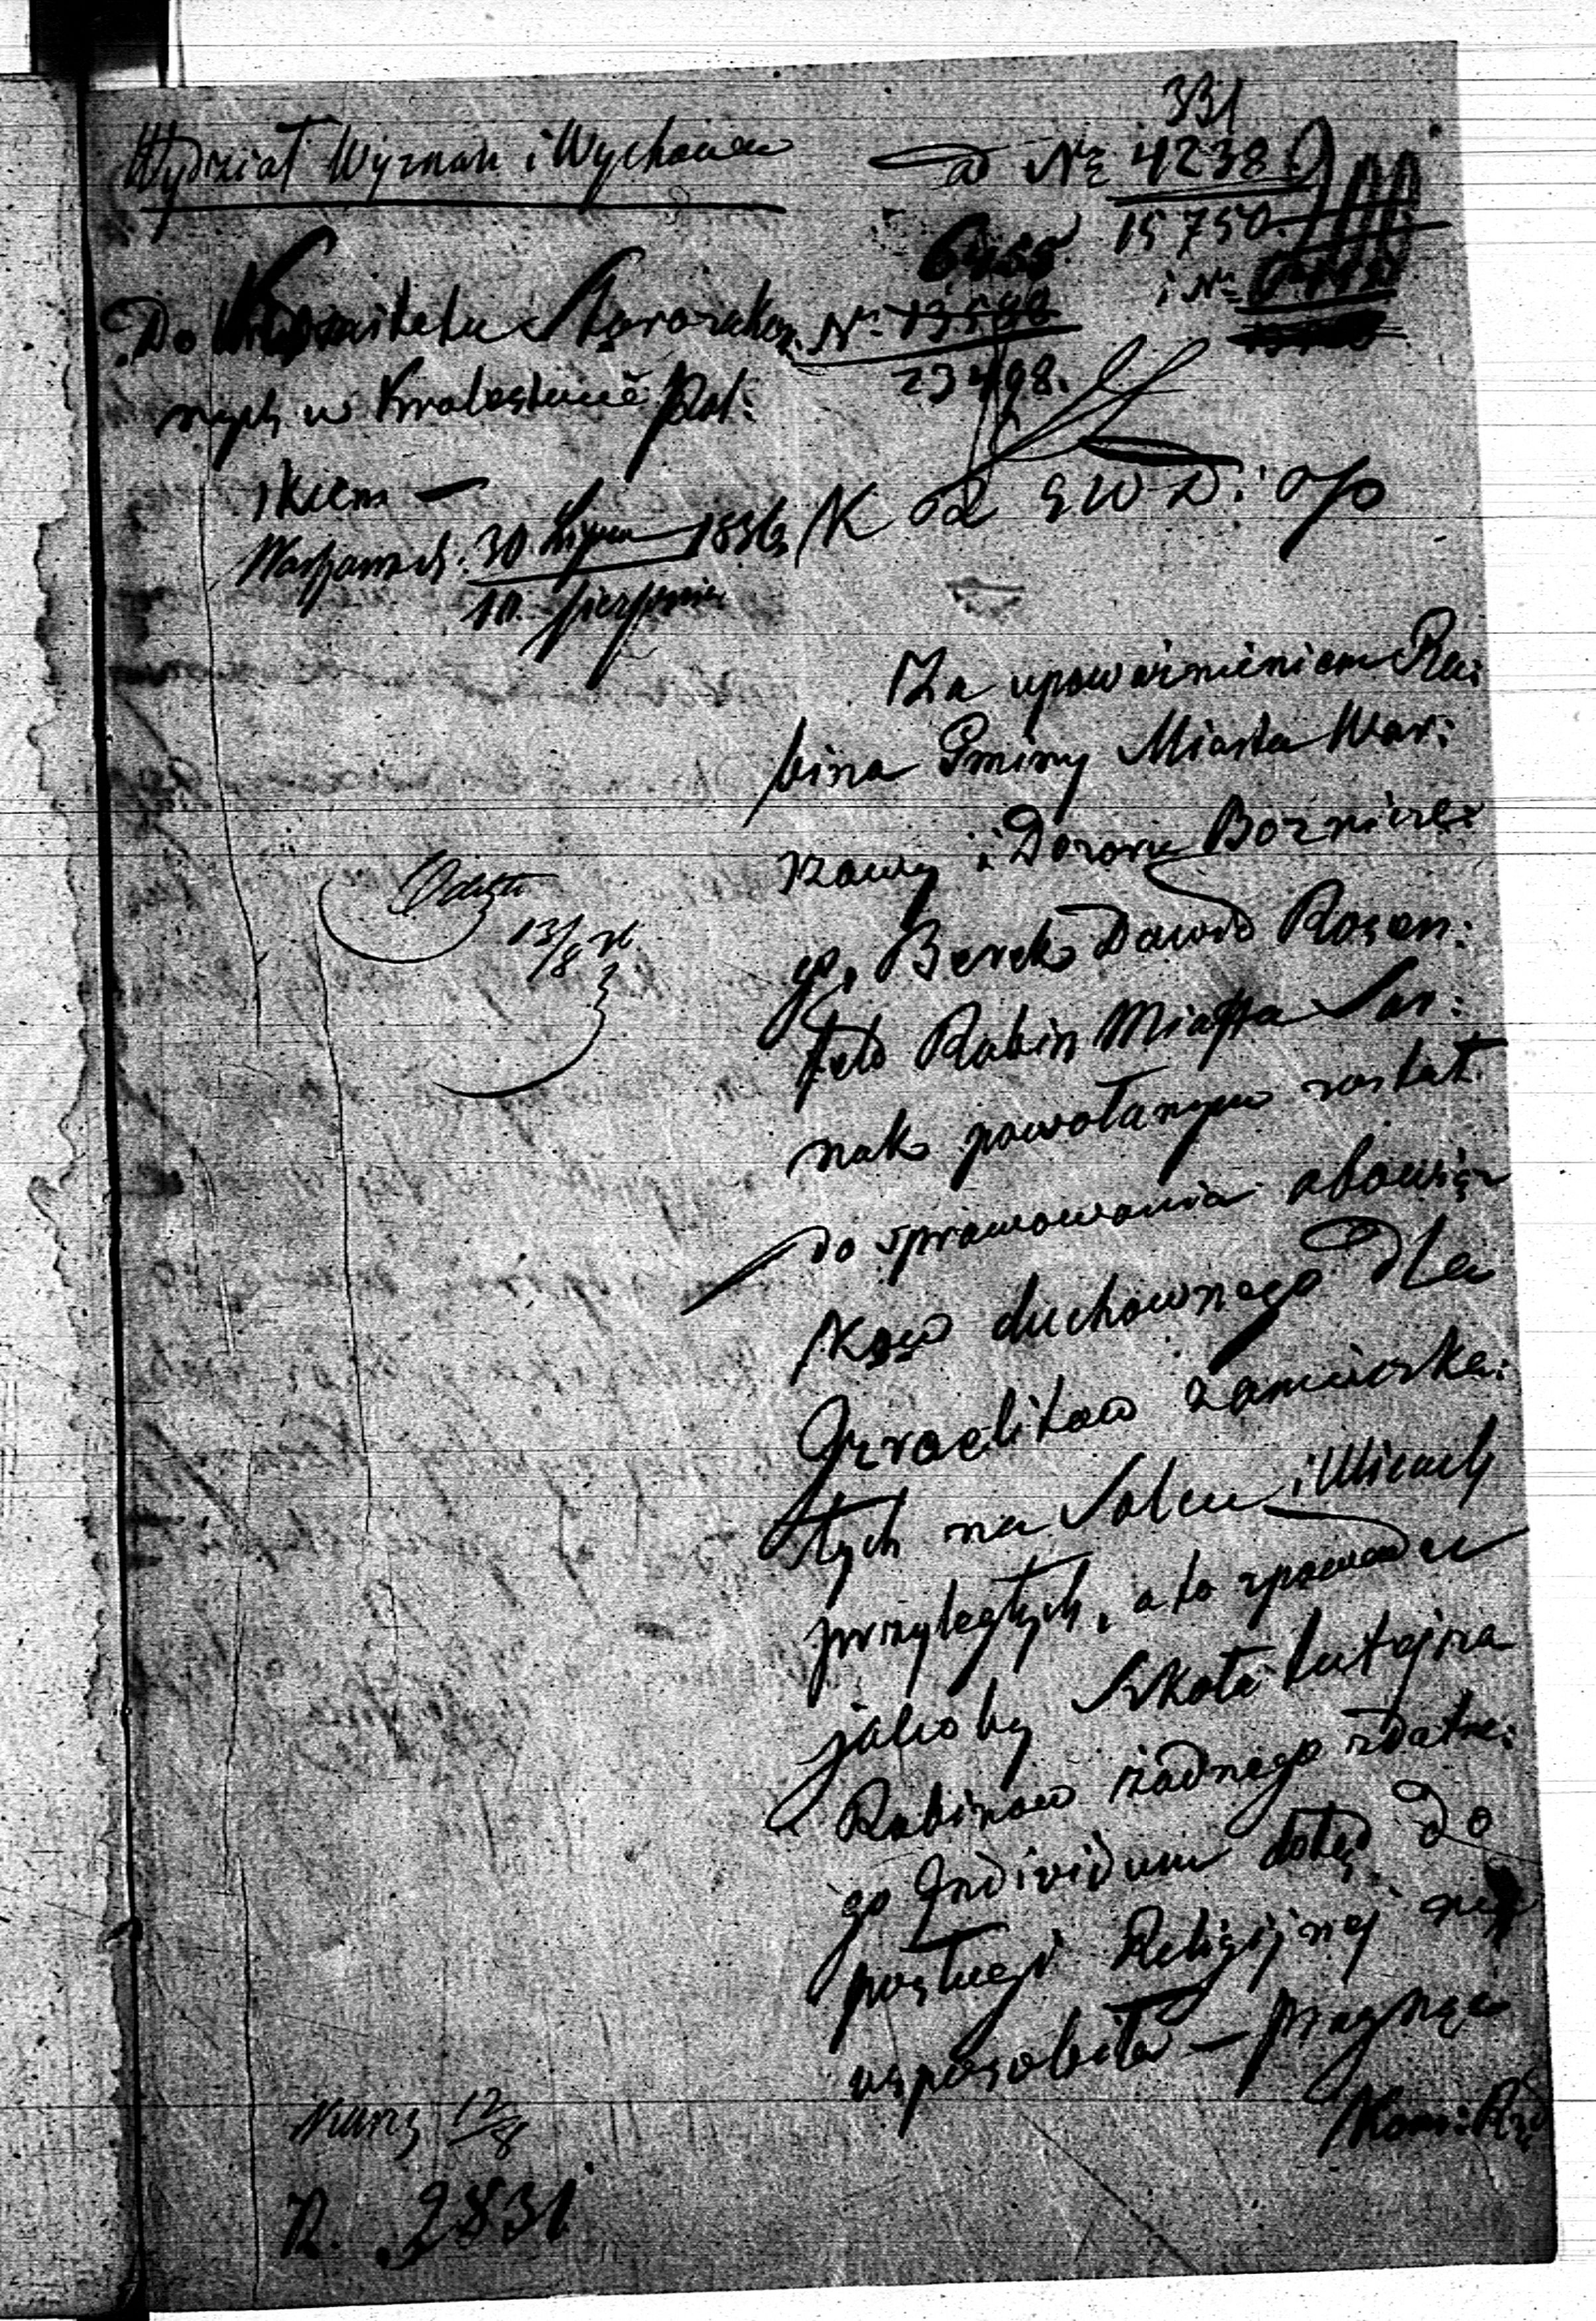 331
Wydział Wyznań i Wychowan
ad Nr 4238
15750.
6455.
i Nr
Do Komitetu Starozakon
Nr 13590
23498.
nych w Królestwie Pol:
Warszawa d: 30 Lipca 1836
10. Sierpnia
K R S W D i op
Za upoważnieniem Ra:
bina Gminy Miasta War:
szawy i Dozoru Boźnicze
go, Berek Dawid Rosen:
feld Rabin Miasta Sar:
nak powołanym został
do sprawowania obowiąz
ków duchownego dla
Izraelitów zamieszka:
łych na Solcu i Ulicach
przyległych, a to z powodu
jakoby Szkoła tutejsza
Rabinów żadnego zdatne:
go Individuum dotąd do
posługi Religijnej nie
usposobiła – pragnąc
Kom: Rzą
13/8
12/8
R. 2831